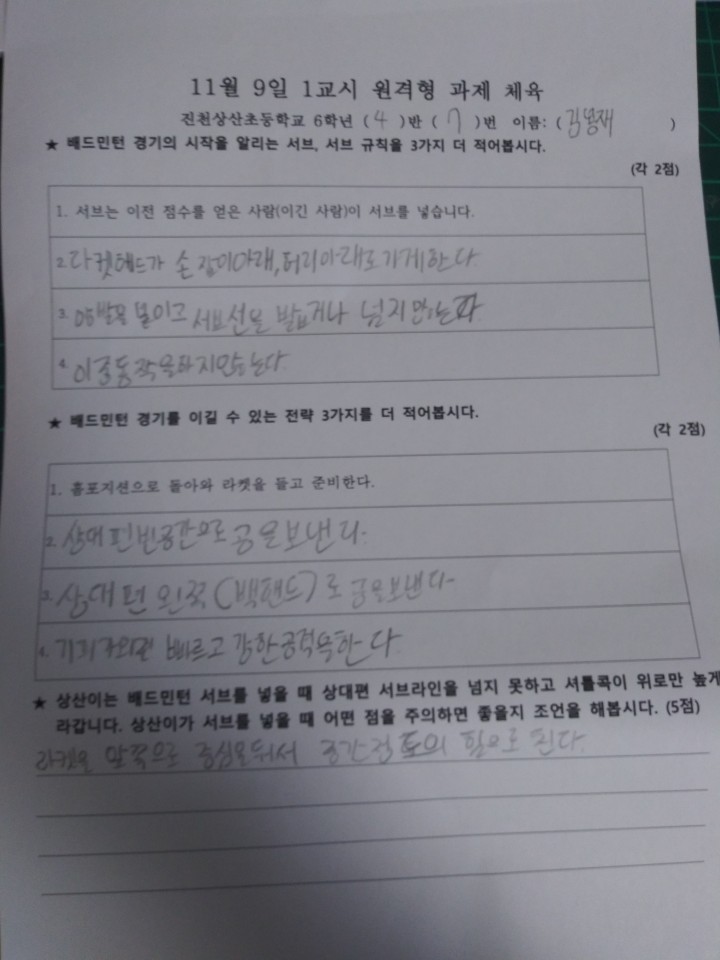 11월 9일 1교시 원격형 과제 체육
진천상산초등학교 6학년 ( 4 )반 ( 7 )번 이름: ( 김봉재 )
★ 배드민턴 경기의 시작을 알리는 서브, 서브 규칙을 3가지 더 적어봅시다.
(각 2점)
1. 서브는 이전 점수를 얻은 사람(이긴 사람)이 서브를 넣습니다.
2. 라켓헤드가 손잡이아래, 허리아래로가게한다.
3. 양발을 붙이고 서브선을 밟거나 넘지않는다
4. 이중동작을하지않는다
★ 배드민턴 경기를 이길 수 있는 전략 3가지를 더 적어봅시다.
(각 2점)
1. 홈포지션으로 돌아와 라켓을 들고 준비한다.
2. 상대편빈공간으로 공을보낸다.
3. 상대편 왼쪽(백핸드)로 공을보낸다
4. 기회가오면 빠르고 강한공격을한다
★ 상산이는 배드민턴 서브를 넣을 때 상대편 서브라인을 넘지 못하고 셔틀콕이 위로만 높게
라갑니다. 상산이가 서브를 넣을 때 어떤 점을 주의하면 좋을지 조언을 해봅시다. (5점)
라켓을 앞쪽으로 중심을둬서 중간정도의 힘으로 친다.